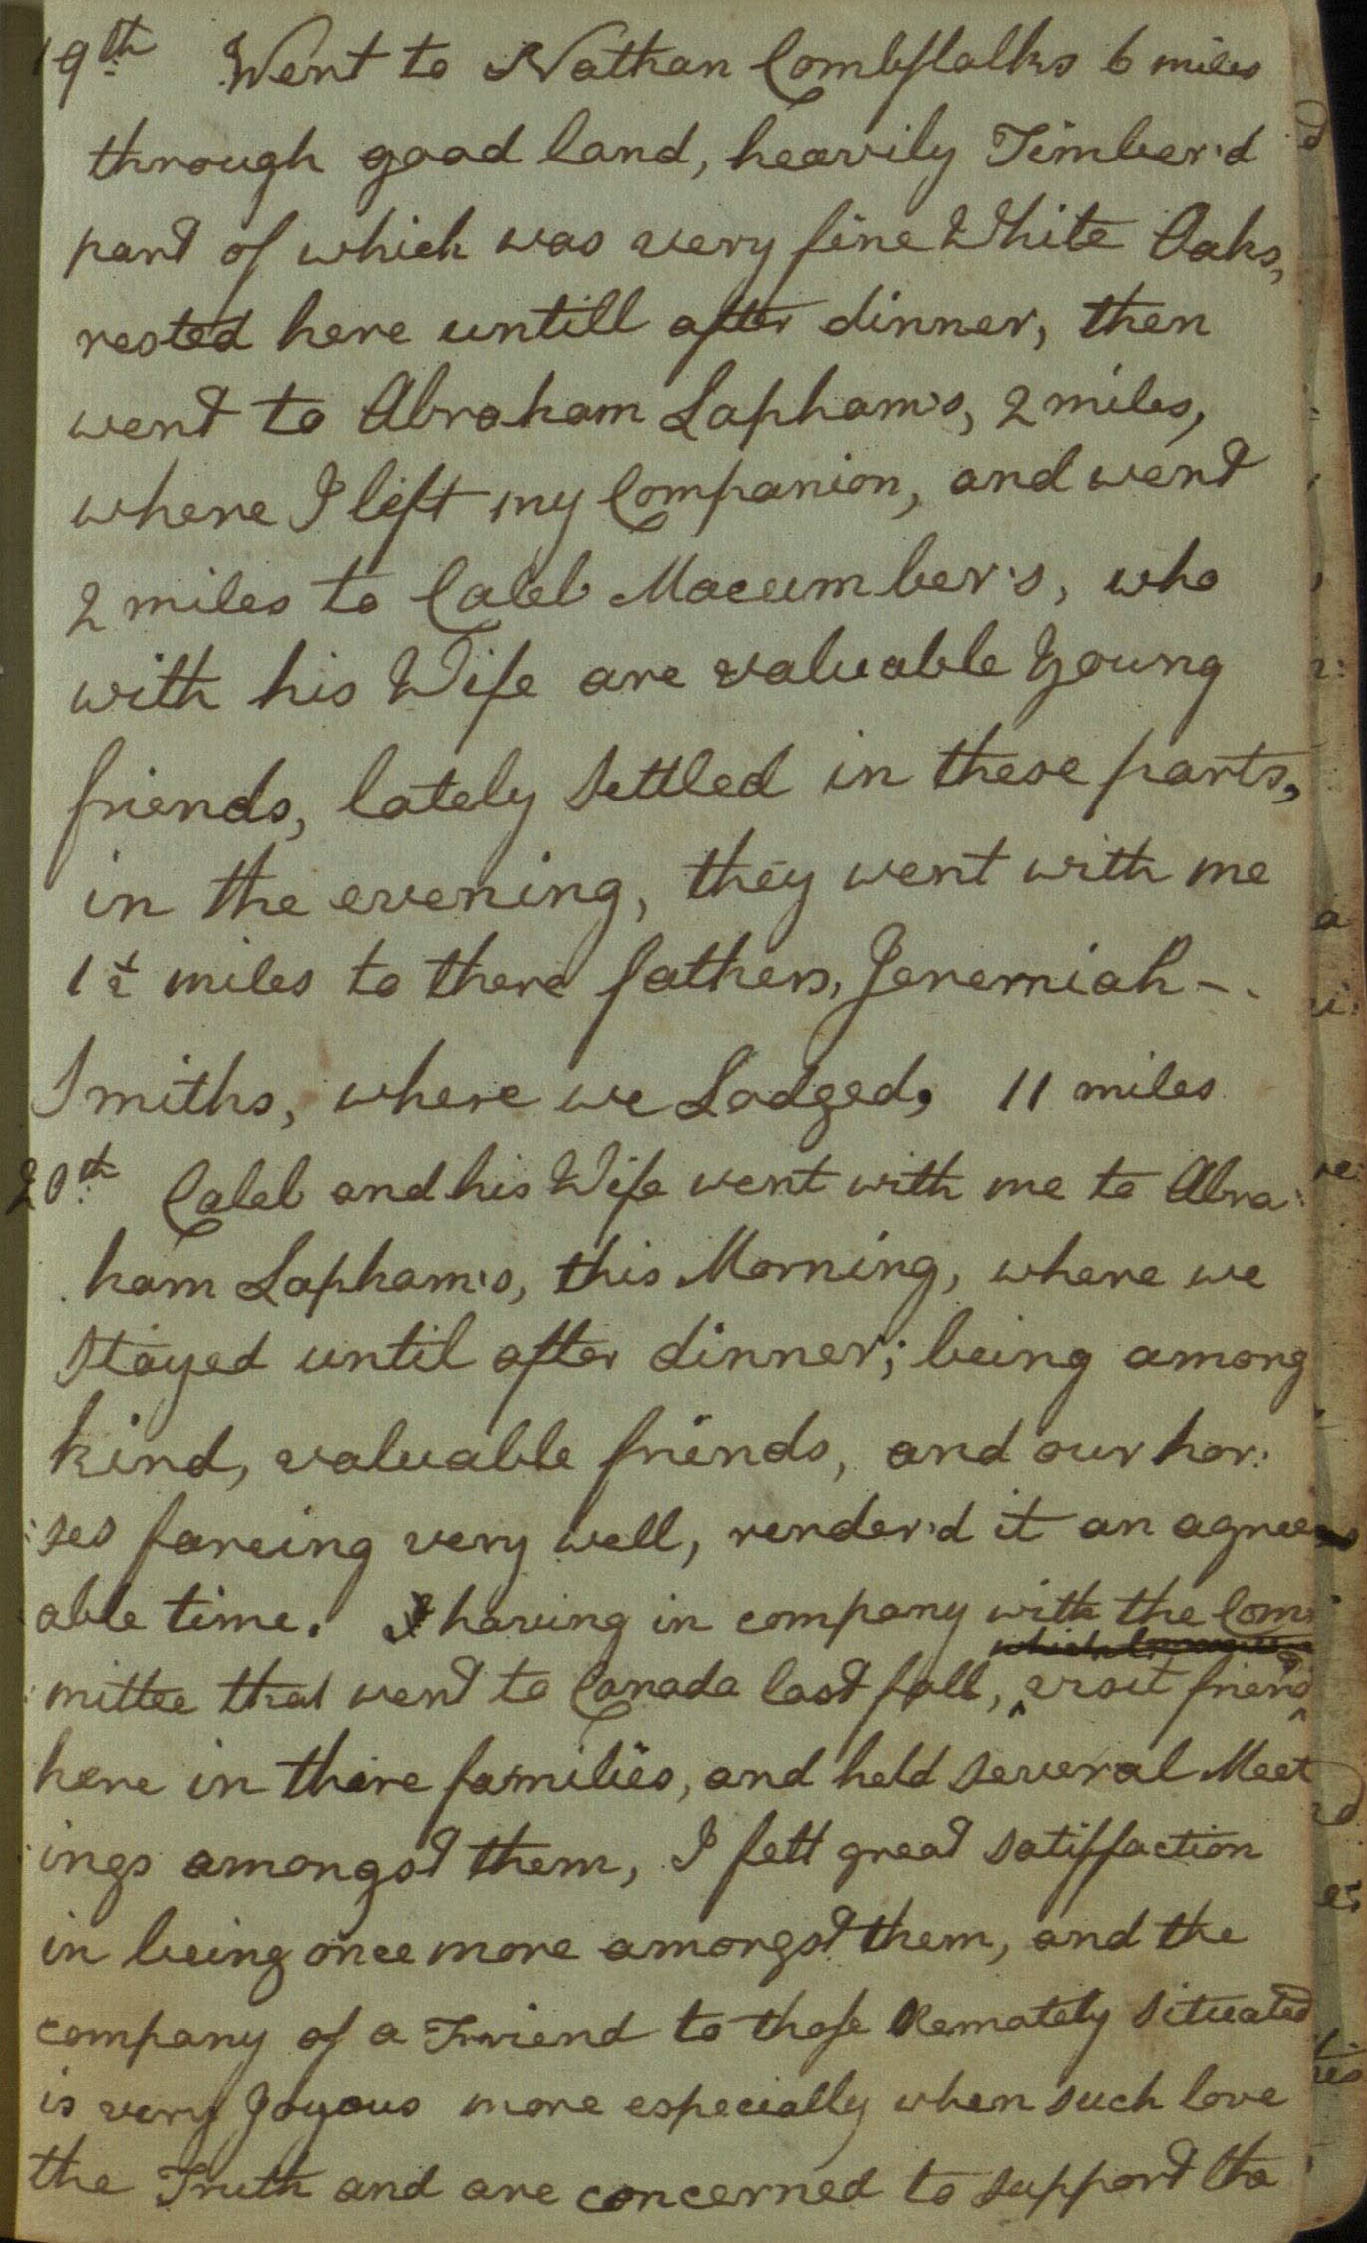 19th Went to Nathan Combstalks 6 miles
through good land, heavily Timber'd
part of which was very fine White Oaks,
rested here untill after dinner, then
went to Abraham Lapham's, 2 miles,
where I left my Companion, and went
2 miles to Caleb Macumber's, who
with his Wife are valuable Young
friends, lately settled in these parts,
in the evening, they went with me
1½ miles to there fathers, Jeremiah -.
Smiths, where we Lodged, 11 miles
20th Caleb and his Wife went with me to Abra:
ham Lapham's, this Morning, where we
stayed until after dinner; being among
kind, valuable friends, and our hor:
:ses fareing very well, render'd it an agree
able time. I having in company with the Com:
:mittee that went to Canada last fall, visit friend
here in there families, and held several Meet
:ings amongst them, I felt great satisfaction
in being once more amongst them, and the
company of a Friend to those Remately situated
is very Joyous more especially when such love
the Truth and are concerned to support the